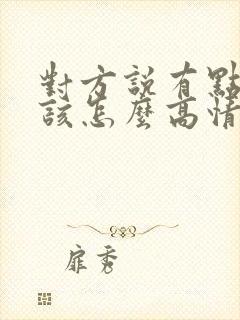 對方說有點
該怎麼高情
扉秀